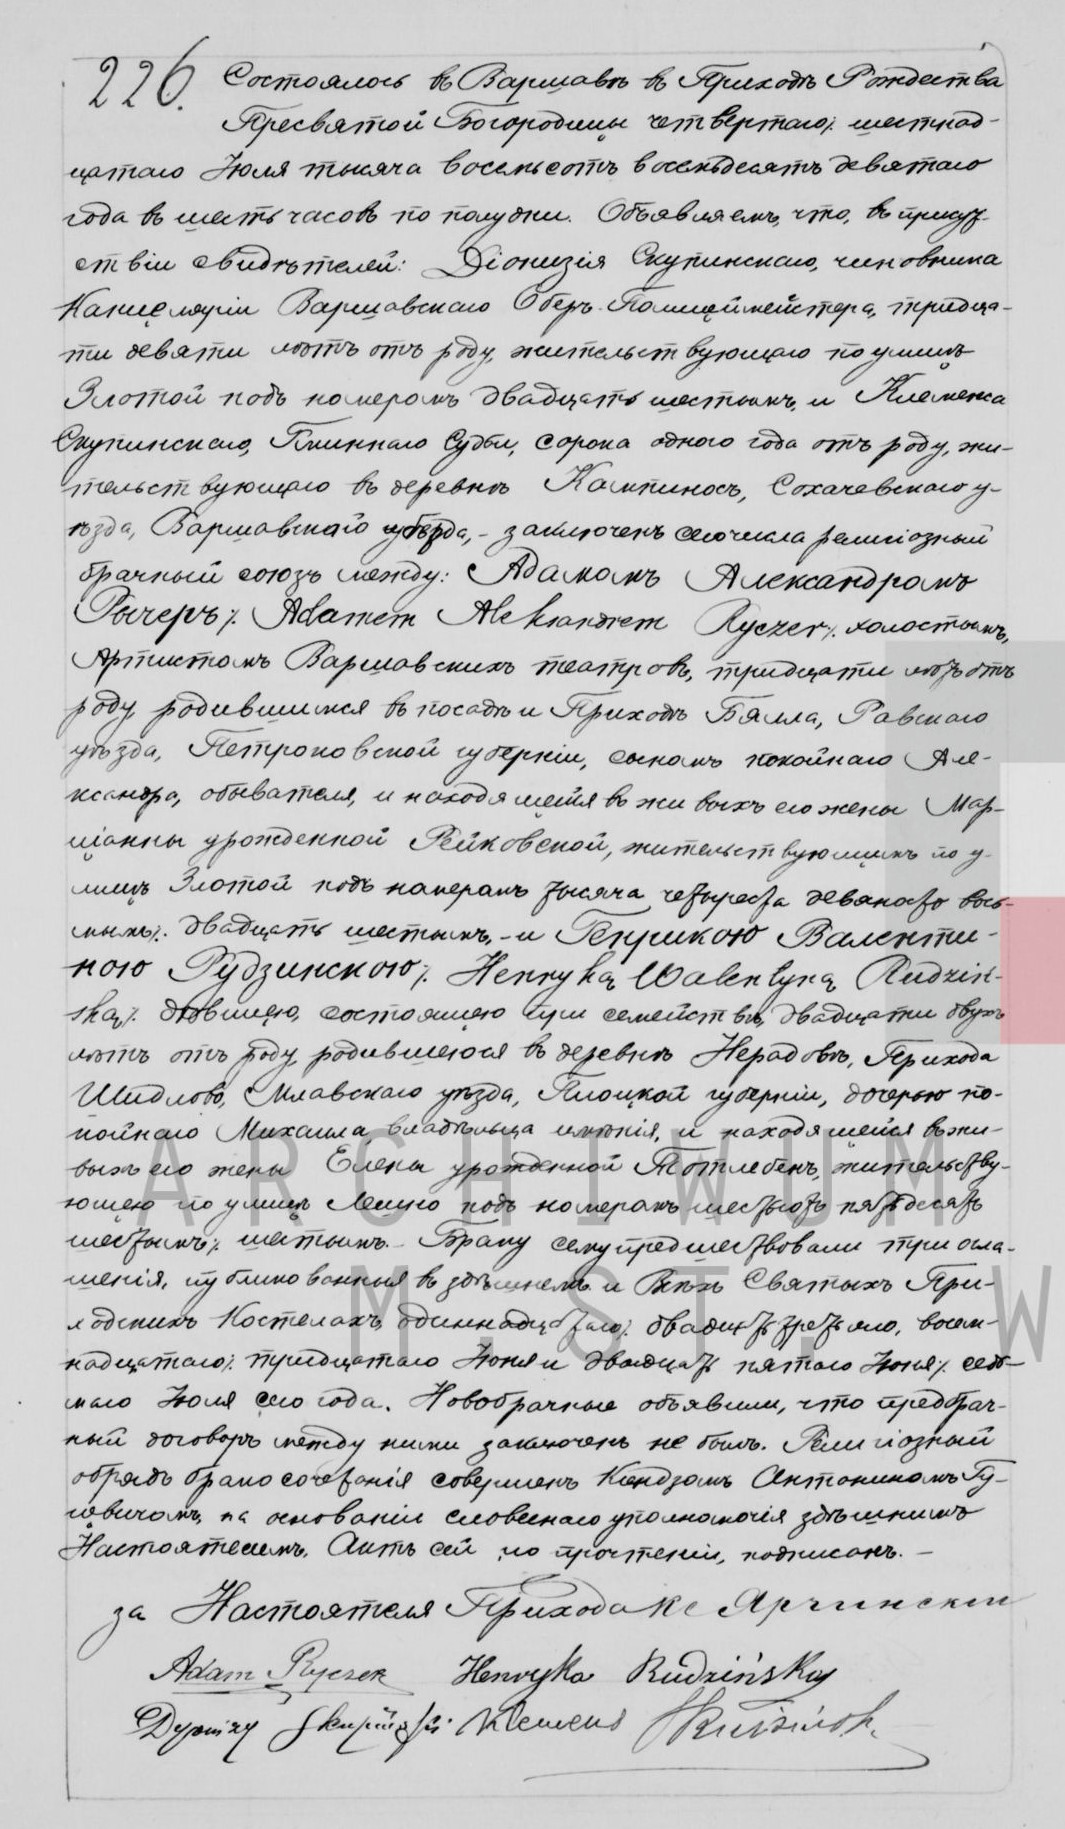 226.
Состоялось въ Варшавѣ въ Приходѣ Рождества
Пресвятой Богородицы четвертаго /: шестнад-
цатаго Іюля тысяча восемьсотъ восемьдесятъ девятаго
года въ шесть часовъ по полудни. Объявляемъ, что, въ присут-
ствіи свидѣтелей: Діонизія Скупинскаго, чиновника
Канцеляріи Варшавскаго Оберъ-Полицеймейстера, тридца-
ти девяти лѣтъ отъ роду, жительствующаго по улицѣ
Злотой подъ номеромъ двадцать шестымъ, и Клеменса
Скупинскаго, Гминнаго Судьи, сорока одного года отъ роду, жи-
тельствующаго въ деревнѣ Кампиносъ, Сохачевскаго у-
ѣзда, Варшавской – заключенъ сего числа религіозный
брачный союзъ между: Адамомъ Александромъ
Рычеръ /: Adamem Aleksandrem Ryczer /: холостымъ,
Артистомъ Варшавскихъ театровъ, тридцати лѣтъ отъ
роду, родившимся въ посадѣ и Приходѣ Бялла, Равскаго
уѣзда, Петроковской губерніи, сыномъ покойнаго Але-
ксандра, обывателя, и находящейся въ живыхъ его жены Мар-
ціанны урожденной Рейковской, жительствующимъ по у-
лицѣ Злотой подъ номеромъ тысяча четыреста девяносто вось-
мымъ /: двадцать шестымъ, – и Генрикою Валенти-
ною Рудзинскою /: Henryką Walentyną Rudziń-
ską /: дѣвицею, состоящею при семействѣ, двадцати двухъ
лѣтъ отъ роду, родившеюся въ деревнѣ Нерадовѣ, Прихода
Шидлово, Млавскаго уѣзда, Плоцкой губерніи, дочерью по-
койнаго Михаила владѣльца имѣнія, и находящейся въ жи-
выхъ его жены Елены урожденной Тотлебенъ, жительству-
ющею по улицѣ Лешно подъ номеромъ шестьсотъ пятьдесятъ
шестымъ /: шестымъ. – Браку сему предшествовали три огла-
шенія, публикованныя въ здѣшнемъ и Всѣхъ Святыхъ При-
ходскихъ Костелахъ, одиннадцатаго /: двадцать третьяго, восем-
надцатаго /: тридцатаго Іюня и двадцать пятаго Іюня /: седь-
маго Іюля сего года. Новобрачные объявили, что предбрач-
ный договоръ между ними заключенъ не былъ. Религіозный
обрядъ бракосочетанія совершенъ Ксендзомъ Антониномъ Гу-
цевичомъ, на основаніи словеснаго уполномочія здѣшнимъ
Настоятелемъ. Актъ сей по прочтеніи, подписанъ. –
за Настоятеля Прихода Кс Ярчинскій
Adam Ryczer Henryka Rudzińska
Dyonizy Skupiński Klemens
ARCHIWUM
M. ST. W